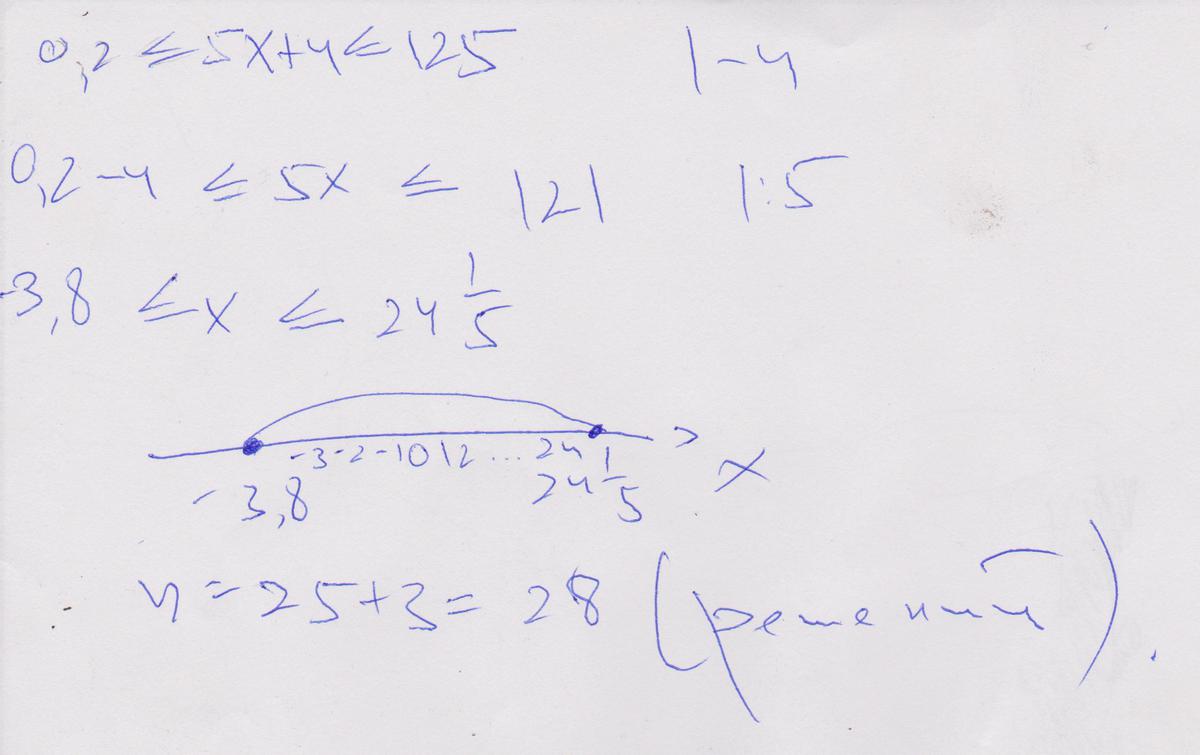 0,2 ≤ 5x+4 ≤ 125 |-4
0,2-4 ≤ 5x ≤ 121 |:5
-3,8 ≤ x ≤ 24 1/5
-3 -2 -1 0 1 2 ... 24
-3,8 24 1/5 x
n = 25+3 = 28 (решений).